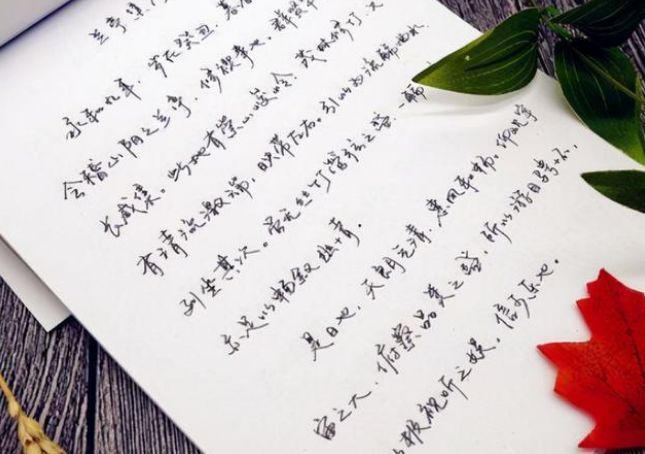 兰亭集
永和九年，岁在癸丑，暮
会稽山阴之兰亭，修禊事也。群贤毕
长咸集。此地有崇山峻岭，茂林修竹，又
有清流激湍，映带左右。引以为流觞曲水，
列坐其次。虽无丝竹管弦之盛，一觞
亦足以畅叙幽情。
是日也，天朗气清，惠风和畅。仰观宇
宙之大，俯察品类之盛，所以游目骋怀，
极视听之娱。信可乐也。